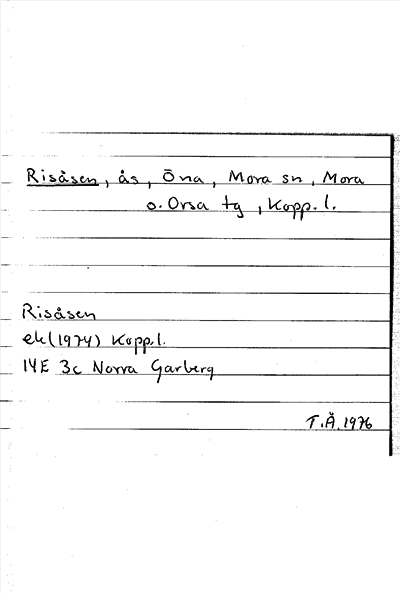 Risåsen, ås, Öna, Mora sn, Mora
o. Orsa tg, Kopp. l.
Risåsen
ek (1974) Kopp. l.
14E 3c Norra Garberg
T.Å. 1976